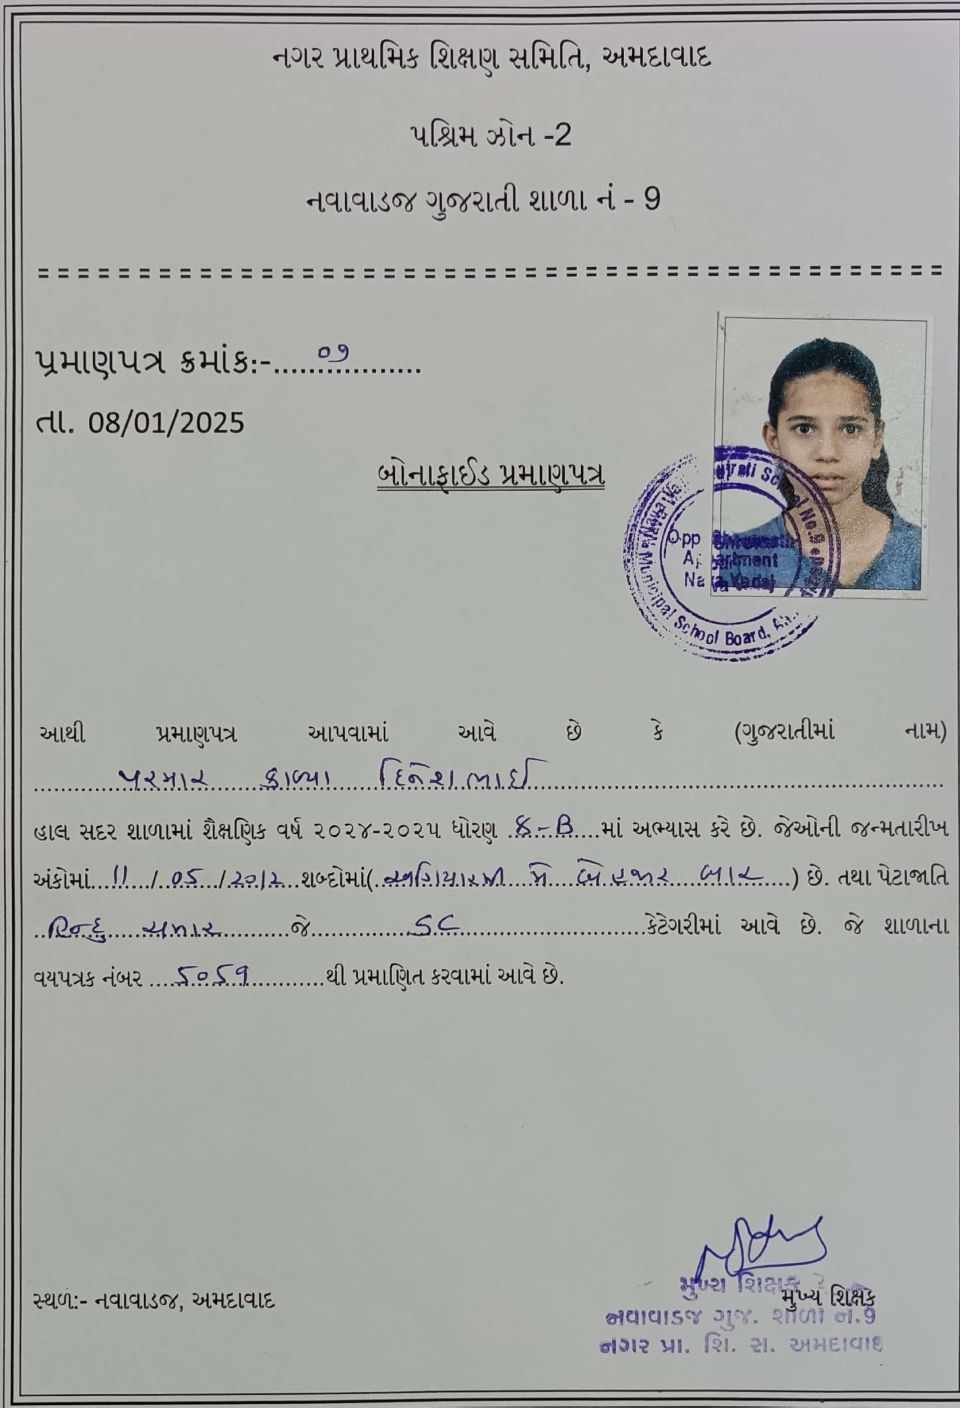 નગર પ્રાથમિક શિક્ષણ સમિતિ, અમદાવાદ
પશ્ચિમ ઝોન -2
નવાવાડજ ગુજરાતી શાળા નં - 9
પ્રમાણપત્ર ક્રમાંક:-.....૦૧.....
તા. 08/01/2025
બોનાફાઈડ પ્રમાણપત્ર
Opp
Apartment
Nava Vadaj
Municipal School Board,
આથી પ્રમાણપત્ર આપવામાં આવે છે કે (ગુજરાતીમાં નામ)
પરમાર કાવ્યા દિનેશભાઈ
હાલ સદર શાળામાં શૈક્ષણિક વર્ષ ૨૦૨૪-૨૦૨૫ ધોરણ .૪-B....માં અભ્યાસ કરે છે. જેઓની જન્મતારીખ
અંકોમાં...11.../..05../.2012...શબ્દોમાં(..અગિયારમી...મે...બે હજાર....બાર....) છે. તથા પેટાજાતિ
..હિન્દુ....ચમાર........જે............SC....................કેટેગરીમાં આવે છે. જે શાળાના
વયપત્રક નંબર ....૬૦૬૧..........થી પ્રમાણિત કરવામાં આવે છે.
સ્થળ:- નવાવાડજ, અમદાવાદ
મુખ્ય શિક્ષક
મુખ્ય શિક્ષક
નવાવાડજ ગુજ. શાળા નં.9
નગર પ્રા. શિ. સ. અમદાવાદ